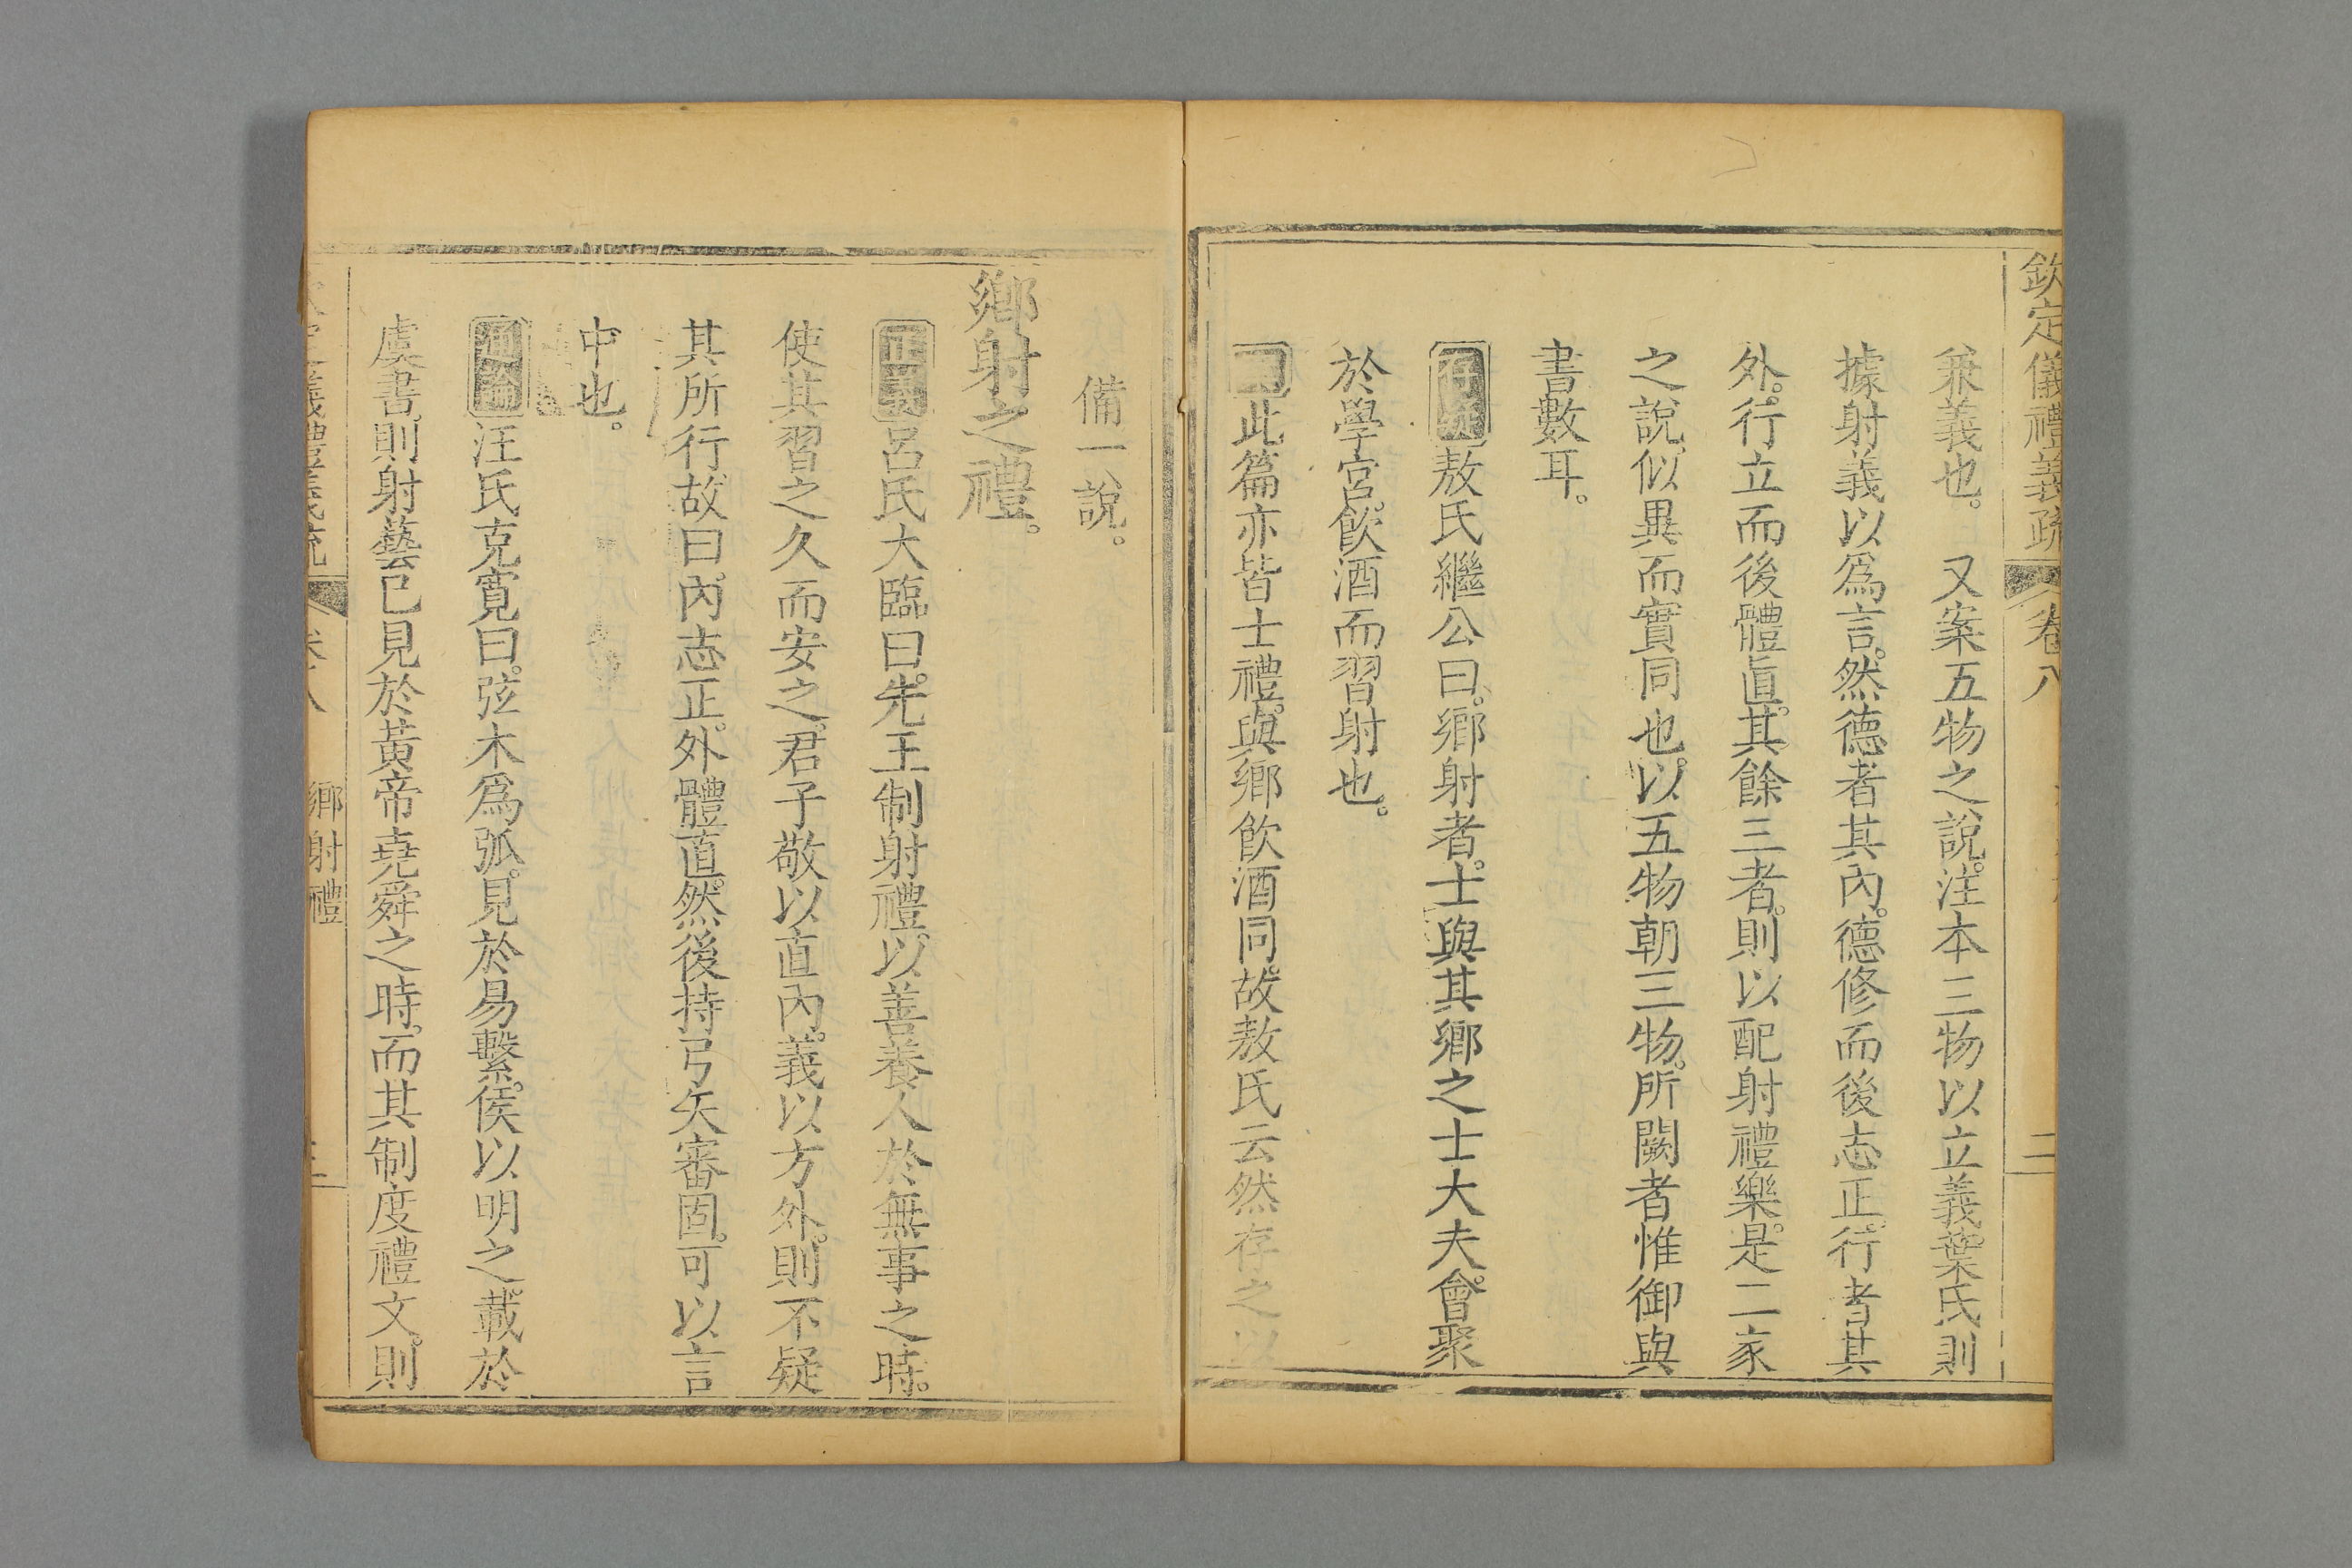 欽定儀禮義疏 卷八 二
兼義也。 又案五物之說。注本三物以立義。葉氏則
據射義以爲言。然德者其內。德修而後志正。行者其
外。行立而後體直。其餘三者。則以配射禮樂。是二家
之說似異而實同也。以五物朝三物。所闕者惟御與
書數耳。
存疑敖氏繼公曰。鄉射者。士與其鄉之士大夫。會聚
於學宮。飮酒而習射也。
此篇亦皆士禮。與鄉飮酒同。故敖氏云然存之以
備一說。
鄉射之禮。
正義呂氏大臨曰。先王制射禮。以善養人於無事之時。
使其習之久而安之。君子敬以直內。義以方外。則不疑
其所行。故曰。內志正。外體直。然後持弓矢審固。可以言
中也。
通論汪氏克寬曰。弦木爲弧。見於易繫。侯以明之。載於
虞書。則射藝已見於黃帝堯舜之時。而其制度禮文。則
義禮義疏 卷八 鄉射禮